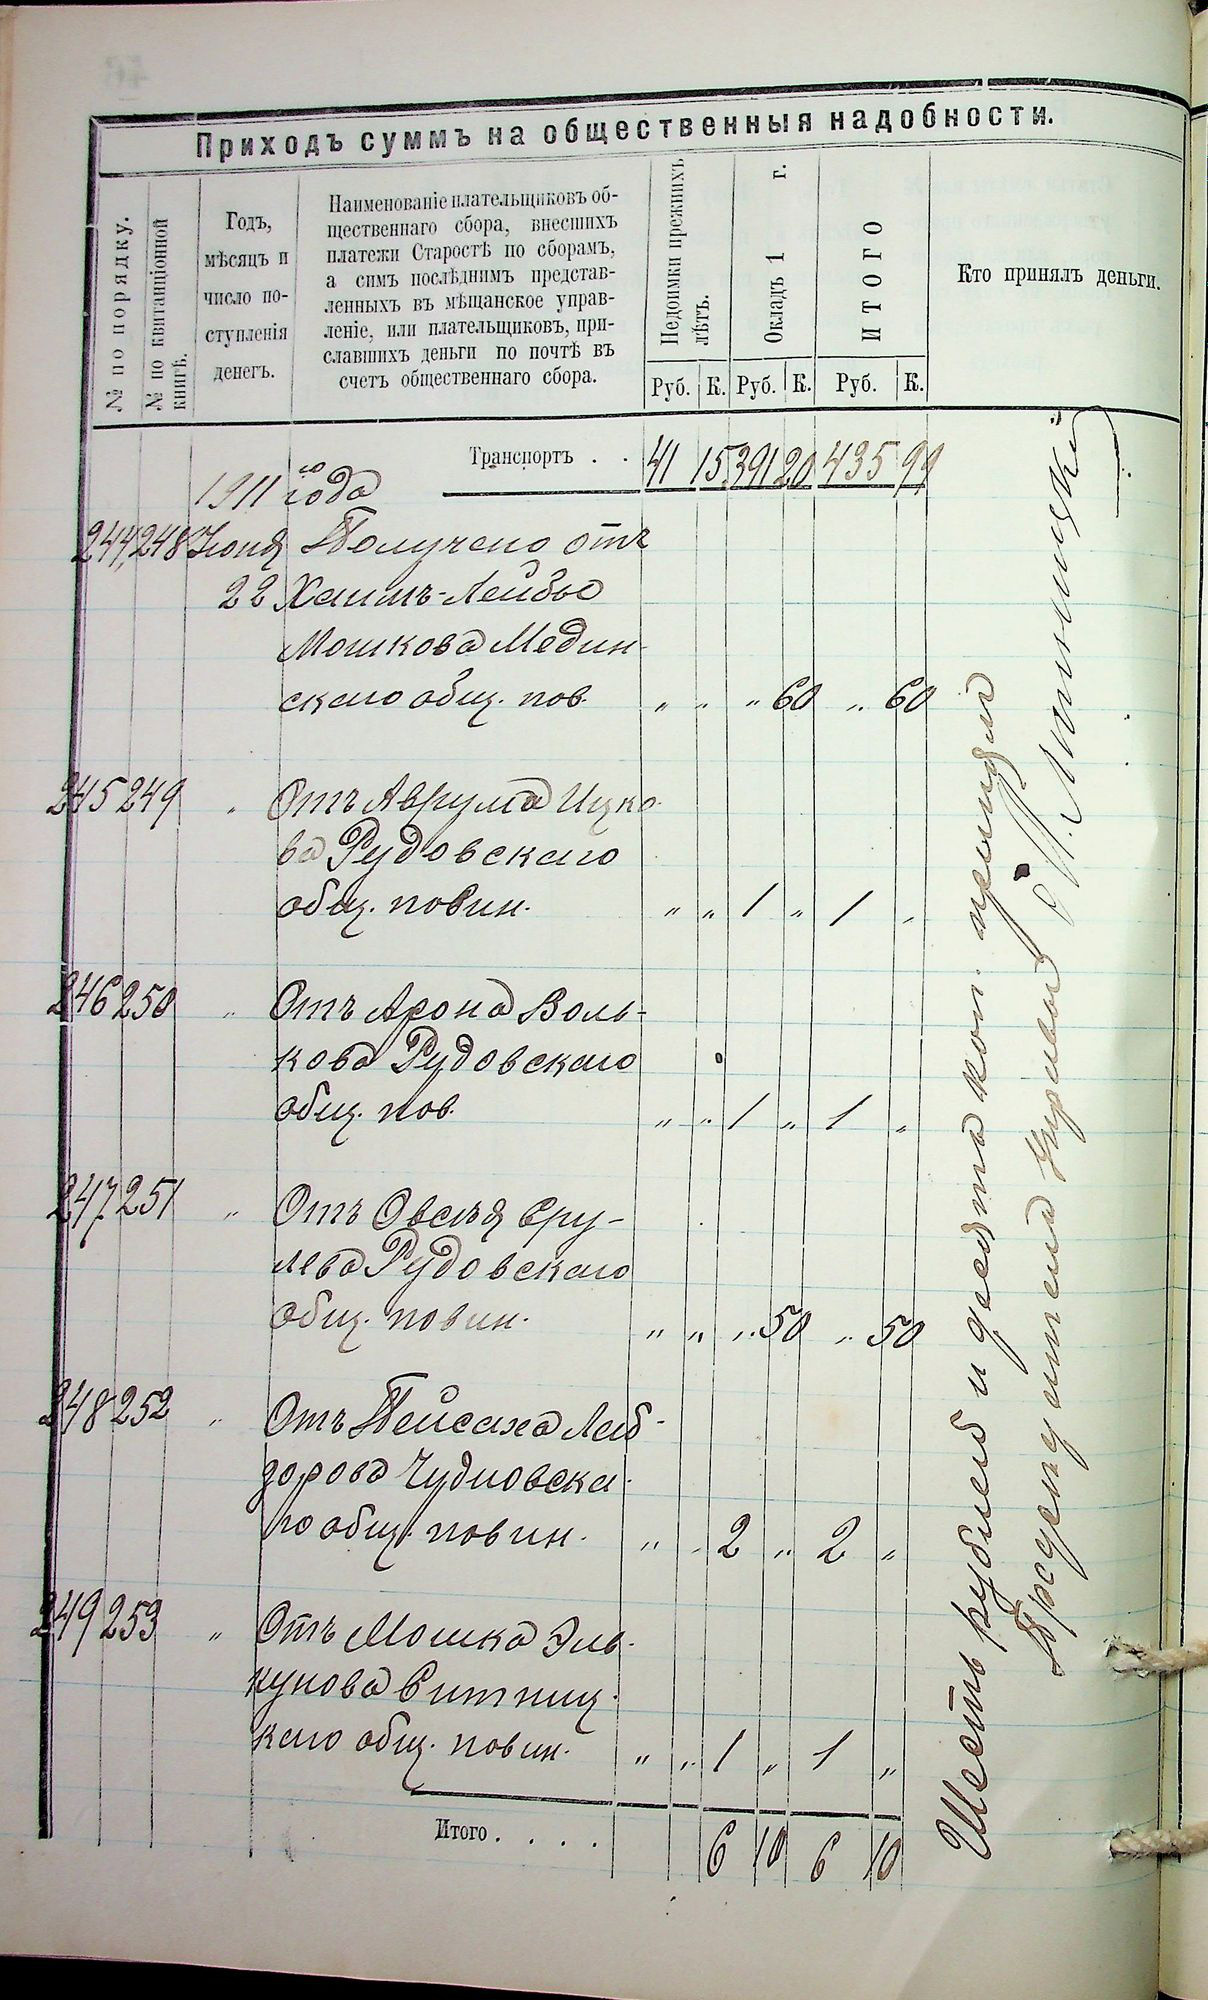 Приходъ суммъ на общественныя надобности.
№ по порядку.
№ по квитанціонной
книгѣ.
Годъ,
мѣсяцъ и
число по-
ступленія
денегъ.
Наименованіе плательщиковъ об-
щественнаго сбора, внесшихъ
платежи Старостѣ по сборамъ,
а симъ послѣднимъ представ-
ленныхъ въ мѣщанское управ-
леніе, или плательщиковъ, при-
славшихъ деньги по почтѣ въ
счетъ общественнаго сбора.
Недоимки прежнихъ
лѣтъ.
Окладъ 1 г.
ИТОГО
Кто принялъ деньги.
Руб. К. Руб. К. Руб. К.
Транспортъ . . 41 15 391 20 435 99
1911 го года
244 248 Июня Получено отъ
22 Хаимъ-Лейбы
Мошкова Медин-
скаго общ. пов. " " " 60 " 60
245 249 " Отъ Аврума Ицко-
ва Рудовскаго
общ. повин. " " 1 " 1 "
246 250 " Отъ Арона Воль-
кова Рудовскаго
общ. пов. " " 1 " 1 "
247 251 " Отъ Овсѣя Сру-
лева Рудовскаго
общ. повин. " " " 50 " 50
248 252 " Отъ Пейсаха Лей-
зорова Чудновска-
го общ. повин. " " 2 " 2 "
249 253 " Отъ Мошка Эль-
кунова Ситниц-
каго общ. повин. " " 1 " 1 "
Итого . . . . 6 10 6 10
Шесть рублей и десять коп. принялъ
Предсѣдатель Управы